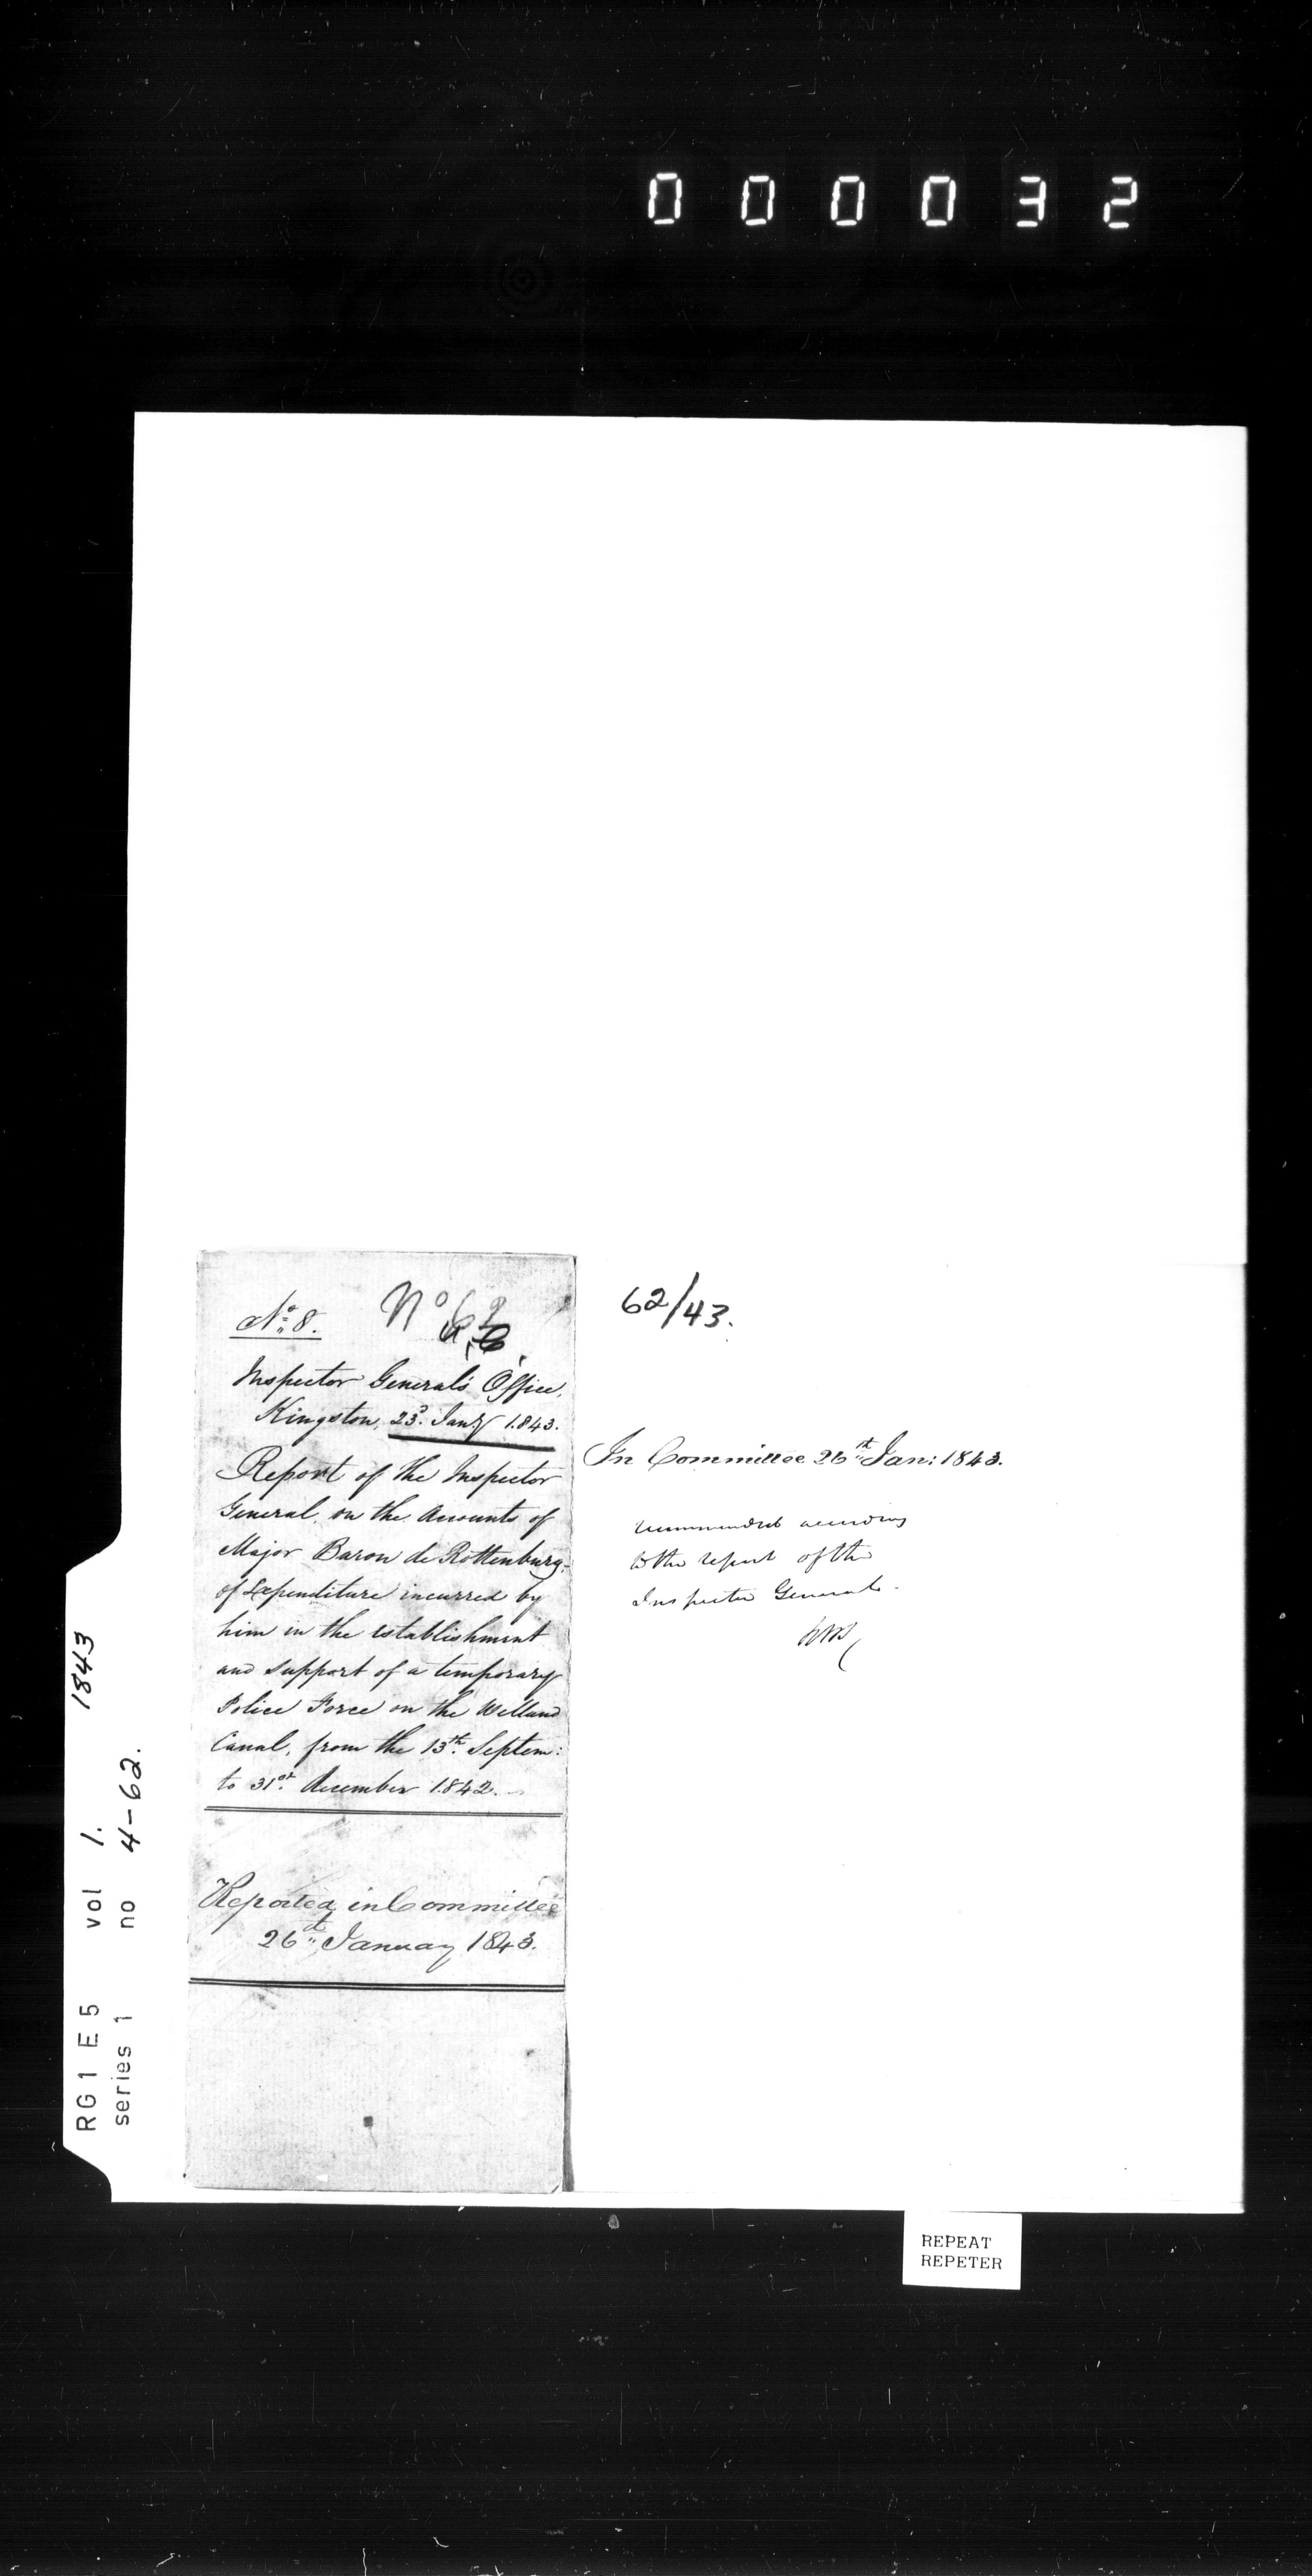 000032
No. 8.
No 62
Inspector General's Office,
Kingston, 23d. Jany 1843.
Report of the Inspector
General, on the Accounts of
Major Baron de Rottenburg,
of Expenditure incurred by
him in the establishment
and support of a temporary
Police Force on the Welland
Canal, from the 13th. Septem:
to 31st. December 1842.
Reported in Committee
26th January 1843.
62/43.
In Committee 26th Jan: 1843.
recommended according
to the report of the
Inspector General.
RG1 E5 vol 1. 1843
series 1 no 4-62.
REPEAT
REPETER